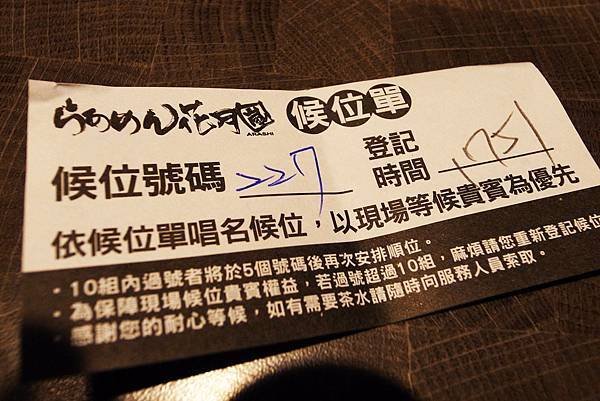 らあめん花月嵐 候位單
ARASHI
候位號碼 227 登記時間 1751
依候位單唱名候位，以現場等候貴賓為優先
・10組內過號者將於5個號碼後再次安排順位。
・為保障現場候位貴賓權益，若過號超過10組，麻煩請您重新登記候位
・感謝您的耐心等候，如有需要茶水請隨時向服務人員索取。